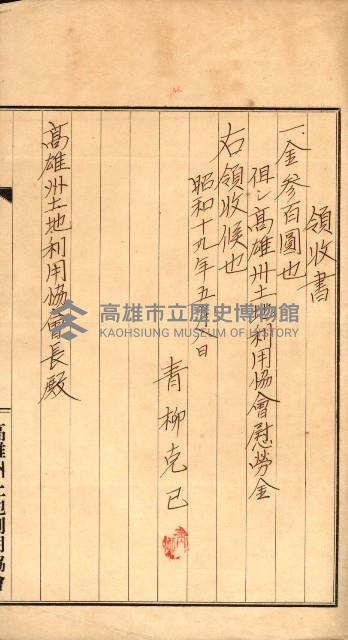 領收書
一、金參百圓也
但シ高雄州土地利用協會慰勞金
右領收候也
昭和十九年五月 日
青柳克巳
高雄州土地利用協會長殿
高雄州土地利用協會
高雄市立歷史博物館
KAOHSIUNG MUSEUM OF HISTORY